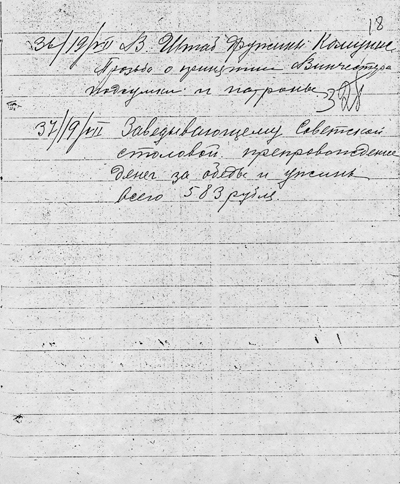 18
36/19/VII В. Штаб Дружины Комунис.
Прозьба о принятии Винчестура
подсумки и патроны
37/19/VII Заведывающему Советской
столовой, препровождение
денег за обеды и ужины
всего 583 рубля